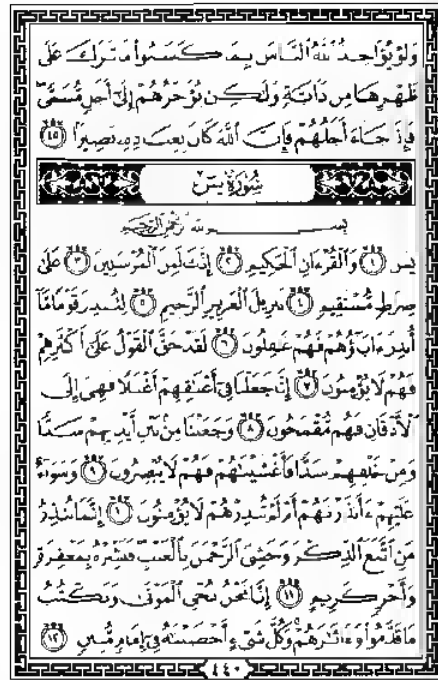 وَلَوْ يُؤَاخِذُ ٱللَّهُ ٱلنَّاسَ بِمَا كَسَبُوا۟ مَا تَرَكَ عَلَىٰ
ظَهْرِهَا مِن دَآبَّةٍ وَلَٰكِن يُؤَخِّرُهُمْ إِلَىٰٓ أَجَلٍ مُّسَمًّى
فَإِذَا جَآءَ أَجَلُهُمْ فَإِنَّ ٱللَّهَ كَانَ بِعِبَادِهِۦ بَصِيرًۢا ٤٥
سُورَةُ يسٓ
بِسْمِ ٱللَّهِ ٱلرَّحْمَٰنِ ٱلرَّحِيمِ
يسٓ ١ وَٱلْقُرْءَانِ ٱلْحَكِيمِ ٢ إِنَّكَ لَمِنَ ٱلْمُرْسَلِينَ ٣ عَلَىٰ
صِرَٰطٍ مُّسْتَقِيمٍ ٤ تَنزِيلَ ٱلْعَزِيزِ ٱلرَّحِيمِ ٥ لِتُنذِرَ قَوْمًا مَّآ
أُنذِرَ ءَابَآؤُهُمْ فَهُمْ غَٰفِلُونَ ٦ لَقَدْ حَقَّ ٱلْقَوْلُ عَلَىٰٓ أَكْثَرِهِمْ
فَهُمْ لَا يُؤْمِنُونَ ٧ إِنَّا جَعَلْنَا فِىٓ أَعْنَٰقِهِمْ أَغْلَٰلًا فَهِىَ إِلَى
ٱلْأَذْقَانِ فَهُم مُّقْمَحُونَ ٨ وَجَعَلْنَا مِنۢ بَيْنِ أَيْدِيهِمْ سَدًّا
وَمِنْ خَلْفِهِمْ سَدًّا فَأَغْشَيْنَٰهُمْ فَهُمْ لَا يُبْصِرُونَ ٩ وَسَوَآءٌ
عَلَيْهِمْ ءَأَنذَرْتَهُمْ أَمْ لَمْ تُنذِرْهُمْ لَا يُؤْمِنُونَ ١٠ إِنَّمَا تُنذِرُ
مَنِ ٱتَّبَعَ ٱلذِّكْرَ وَخَشِىَ ٱلرَّحْمَٰنَ بِٱلْغَيْبِ فَبَشِّرْهُ بِمَغْفِرَةٍ
وَأَجْرٍ كَرِيمٍ ١١ إِنَّا نَحْنُ نُحْىِ ٱلْمَوْتَىٰ وَنَكْتُبُ
مَا قَدَّمُوا۟ وَءَاثَٰرَهُمْ وَكُلَّ شَىْءٍ أَحْصَيْنَٰهُ فِىٓ إِمَامٍ مُّبِينٍ ١٢
٤٤٠